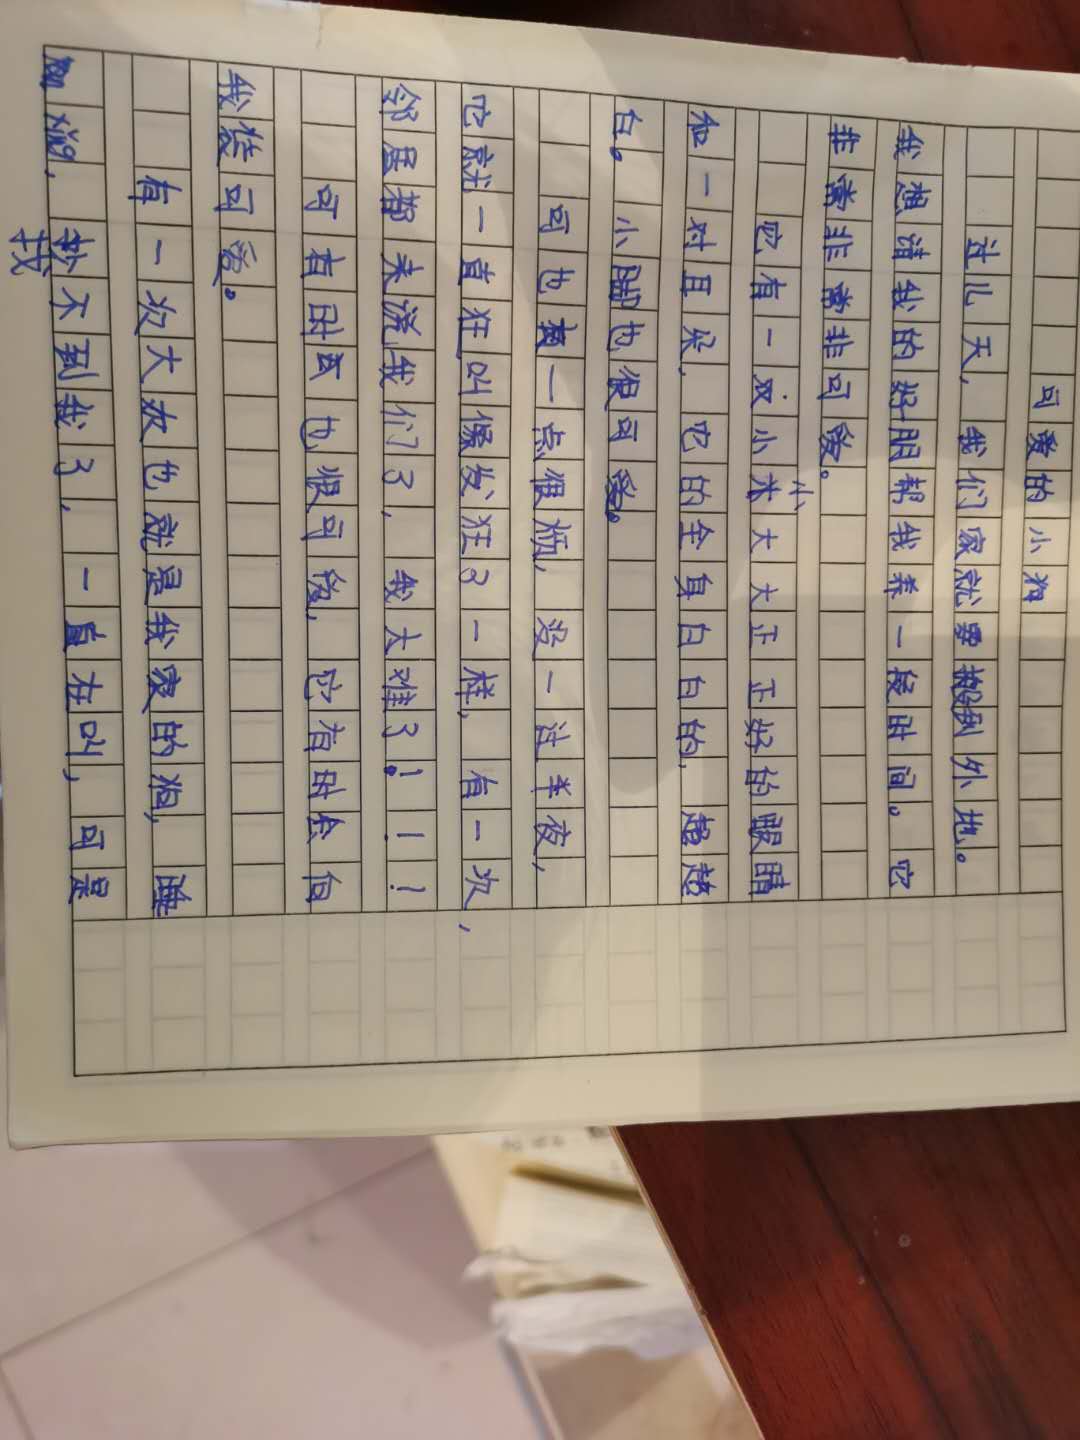 可爱的小狗
过几天,我们家就要搬到外地。
我想请我的好朋帮我养一段时间。它
非常非常非可爱。
它有一双小小大大正正好的眼睛
和一对耳朵,它的全身白白的,超超
白。小脚也很可爱。
可也有一点很烦,没一过半夜,
它就一直狂叫像发狂了一样,有一次,
邻居都来说我们了,我太难了!!!
可有时可也很可爱,它有时会向
我装可爱。
有一次大次也就是我家的狗,睡
,找不到我了,一直在叫,可是